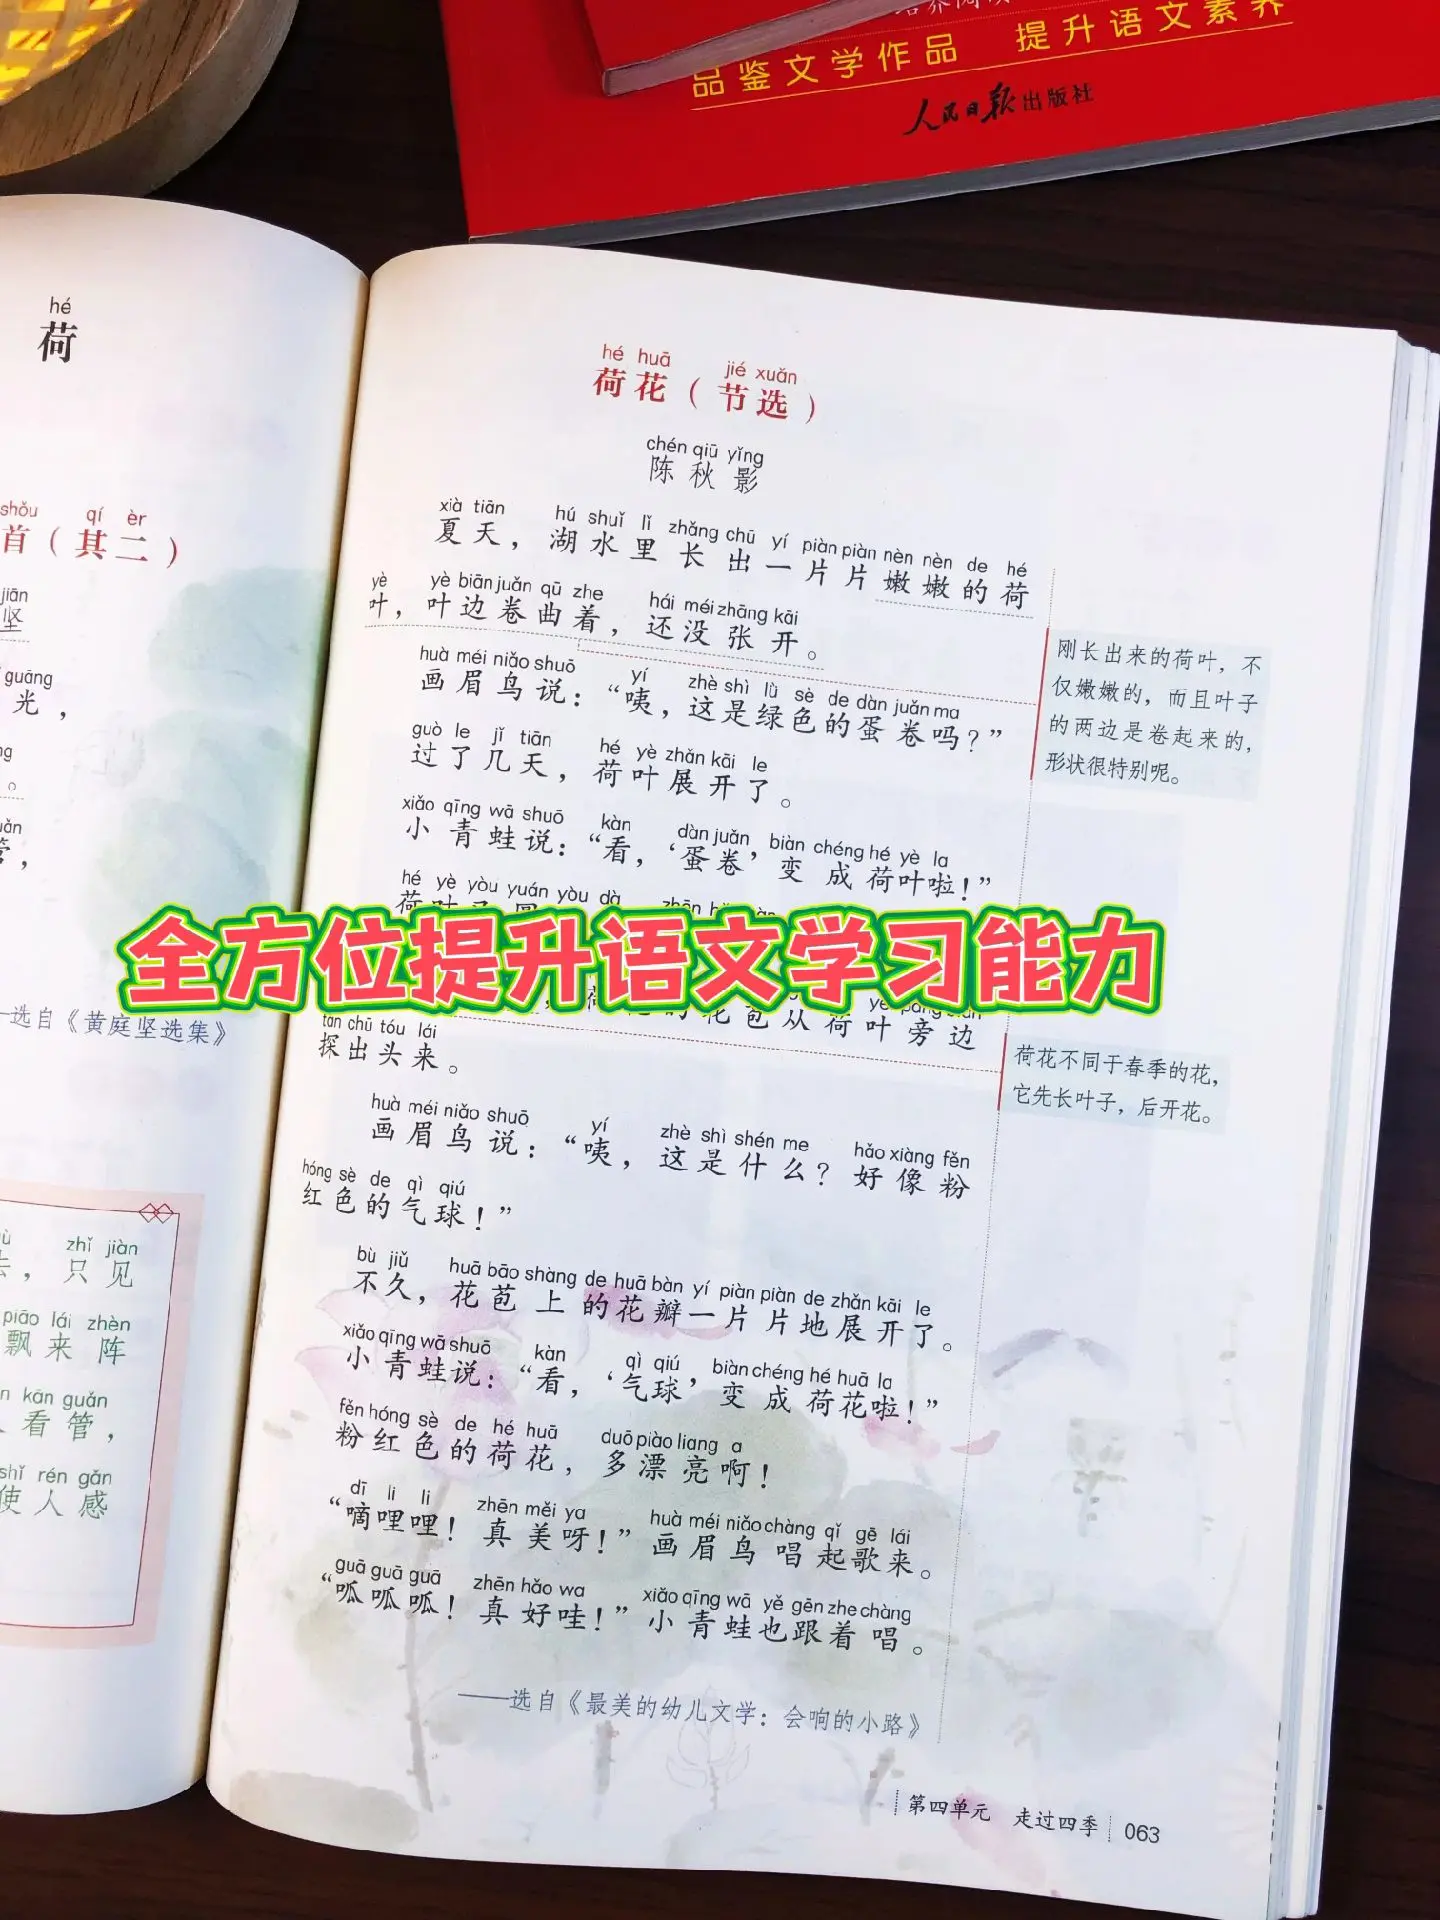 品鉴文学作品 提升语文素养
人民日报出版社
hé
荷
shǒu qí èr
首（其二）
jiān
坚
guāng
光，
。
管，
选自《黄庭坚选集》
zhǐ jiàn
，只见
piāo lái zhèn
飘来阵
kān guǎn
看管，
shǐ rén gǎn
使人感
hé huā jié xuǎn
荷花（节选）
chén qiū yǐng
陈秋影
xià tiān hú shuǐ lǐ zhǎng chū yí piàn piàn nèn nèn de hé
夏天，湖水里长出一片片嫩嫩的荷
yè yè biān juǎn qū zhe hái méi zhāng kāi
叶，叶边卷曲着，还没张开。
huà méi niǎo shuō yí zhè shì lǜ sè de dàn juǎn ma
画眉鸟说：“咦，这是绿色的蛋卷吗？”
guò le jǐ tiān hé yè zhǎn kāi le
过了几天，荷叶展开了。
xiǎo qīng wā shuō kàn dàn juǎn biàn chéng hé yè la
小青蛙说：“看，‘蛋卷’变成荷叶啦！”
hé yè yòu yuán yòu dà
全方位提升语文学习能力
花苞从荷叶旁边
tàn chū tóu lái
探出头来。
huà méi niǎo shuō yí zhè shì shén me hǎo xiàng fěn
画眉鸟说：“咦，这是什么？好像粉
hóng sè de qì qiú
红色的气球！”
bù jiǔ huā bāo shàng de huā bàn yí piàn piàn de zhǎn kāi le
不久，花苞上的花瓣一片片地展开了。
xiǎo qīng wā shuō kàn qì qiú biàn chéng hé huā la
小青蛙说：“看，‘气球’变成荷花啦！”
fěn hóng sè de hé huā duō piào liang a
粉红色的荷花，多漂亮啊！
dī li li zhēn měi ya huà méi niǎo chàng qǐ gē lái
“嘀哩哩！真美呀！”画眉鸟唱起歌来。
guā guā guā zhēn hǎo wa xiǎo qīng wā yě gēn zhe chàng
“呱呱呱！真好哇！”小青蛙也跟着唱。
——选自《最美的幼儿文学：会响的小路》
刚长出来的荷叶，不
仅嫩嫩的，而且叶子
的两边是卷起来的，
形状很特别呢。
荷花不同于春季的花，
它先长叶子，后开花。
第四单元 走过四季 063